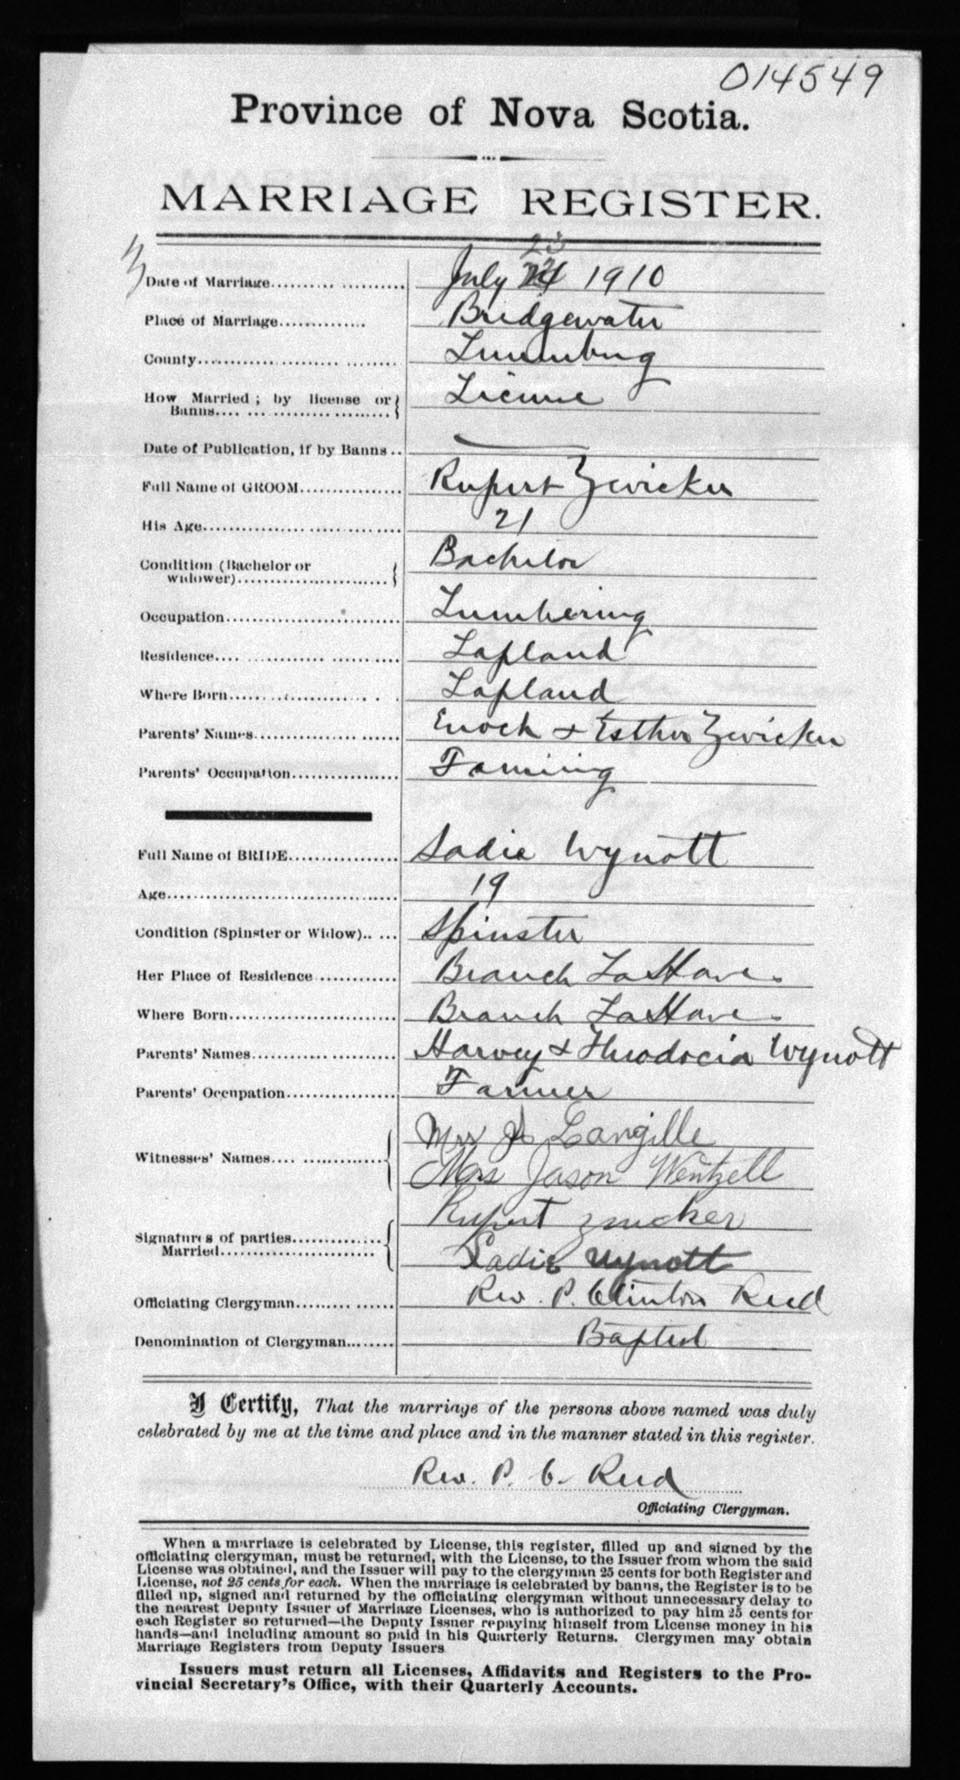 014549
Province of Nova Scotia.
MARRIAGE REGISTER.
23
Date of Marriage.................. July 24 1910
Place of Marriage............. Bridgewater
County.................. Lunenburg
How Married; by license or License
Banns....................
Date of Publication, if by Banns..
Full Name of GROOM............... Rupert Zwicker
His Age.................. 21
Condition (Bachelor or Bachelor
widower)......................
Occupation.................. Lumbering
Residence.................. Lapland
Where Born.................. Lapland
Parents' Names.................. Enoch & Esther Zwicker
Parents' Occupation............... Farming
Full Name of BRIDE................ Sadie Wynott
Age.................. 19
Condition (Spinster or Widow)..... Spinster
Her Place of Residence............ Branch LaHave.
Where Born.................. Branch LaHave.
Parents' Names.................. Harvey & Theodocia Wynott
Parents' Occupation................. Farmer
Mrs Langille
Witnesses' Names.................. Mrs Jason Wentzell
Rupert Zwicker
Signatures of parties..............
Married...................... Sadie Wynott
Officiating Clergyman.............. Rev. P. Clinton Reed
Denomination of Clergyman........ Baptist
I Certify, That the marriage of the persons above named was duly
celebrated by me at the time and place and in the manner stated in this register.
Rev. P. C. Reed
Officiating Clergyman.
When a marriage is celebrated by License, this register, filled up and signed by the
officiating clergyman, must be returned, with the License, to the Issuer from whom the said
License was obtained, and the Issuer will pay to the clergyman 25 cents for both Register and
License, not 25 cents for each. When the marriage is celebrated by banns, the Register is to be
filled up, signed and returned by the officiating clergyman without unnecessary delay to
the nearest Deputy Issuer of Marriage Licenses, who is authorized to pay him 25 cents for
each Register so returned—the Deputy Issuer repaying himself from License money in his
hands—and including amount so paid in his Quarterly Returns. Clergymen may obtain
Marriage Registers from Deputy Issuers
Issuers must return all Licenses, Affidavits and Registers to the Pro-
vincial Secretary's Office, with their Quarterly Accounts.